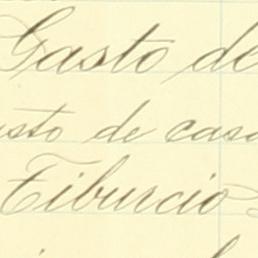 Gasto de
usto de casa
Tiburcio